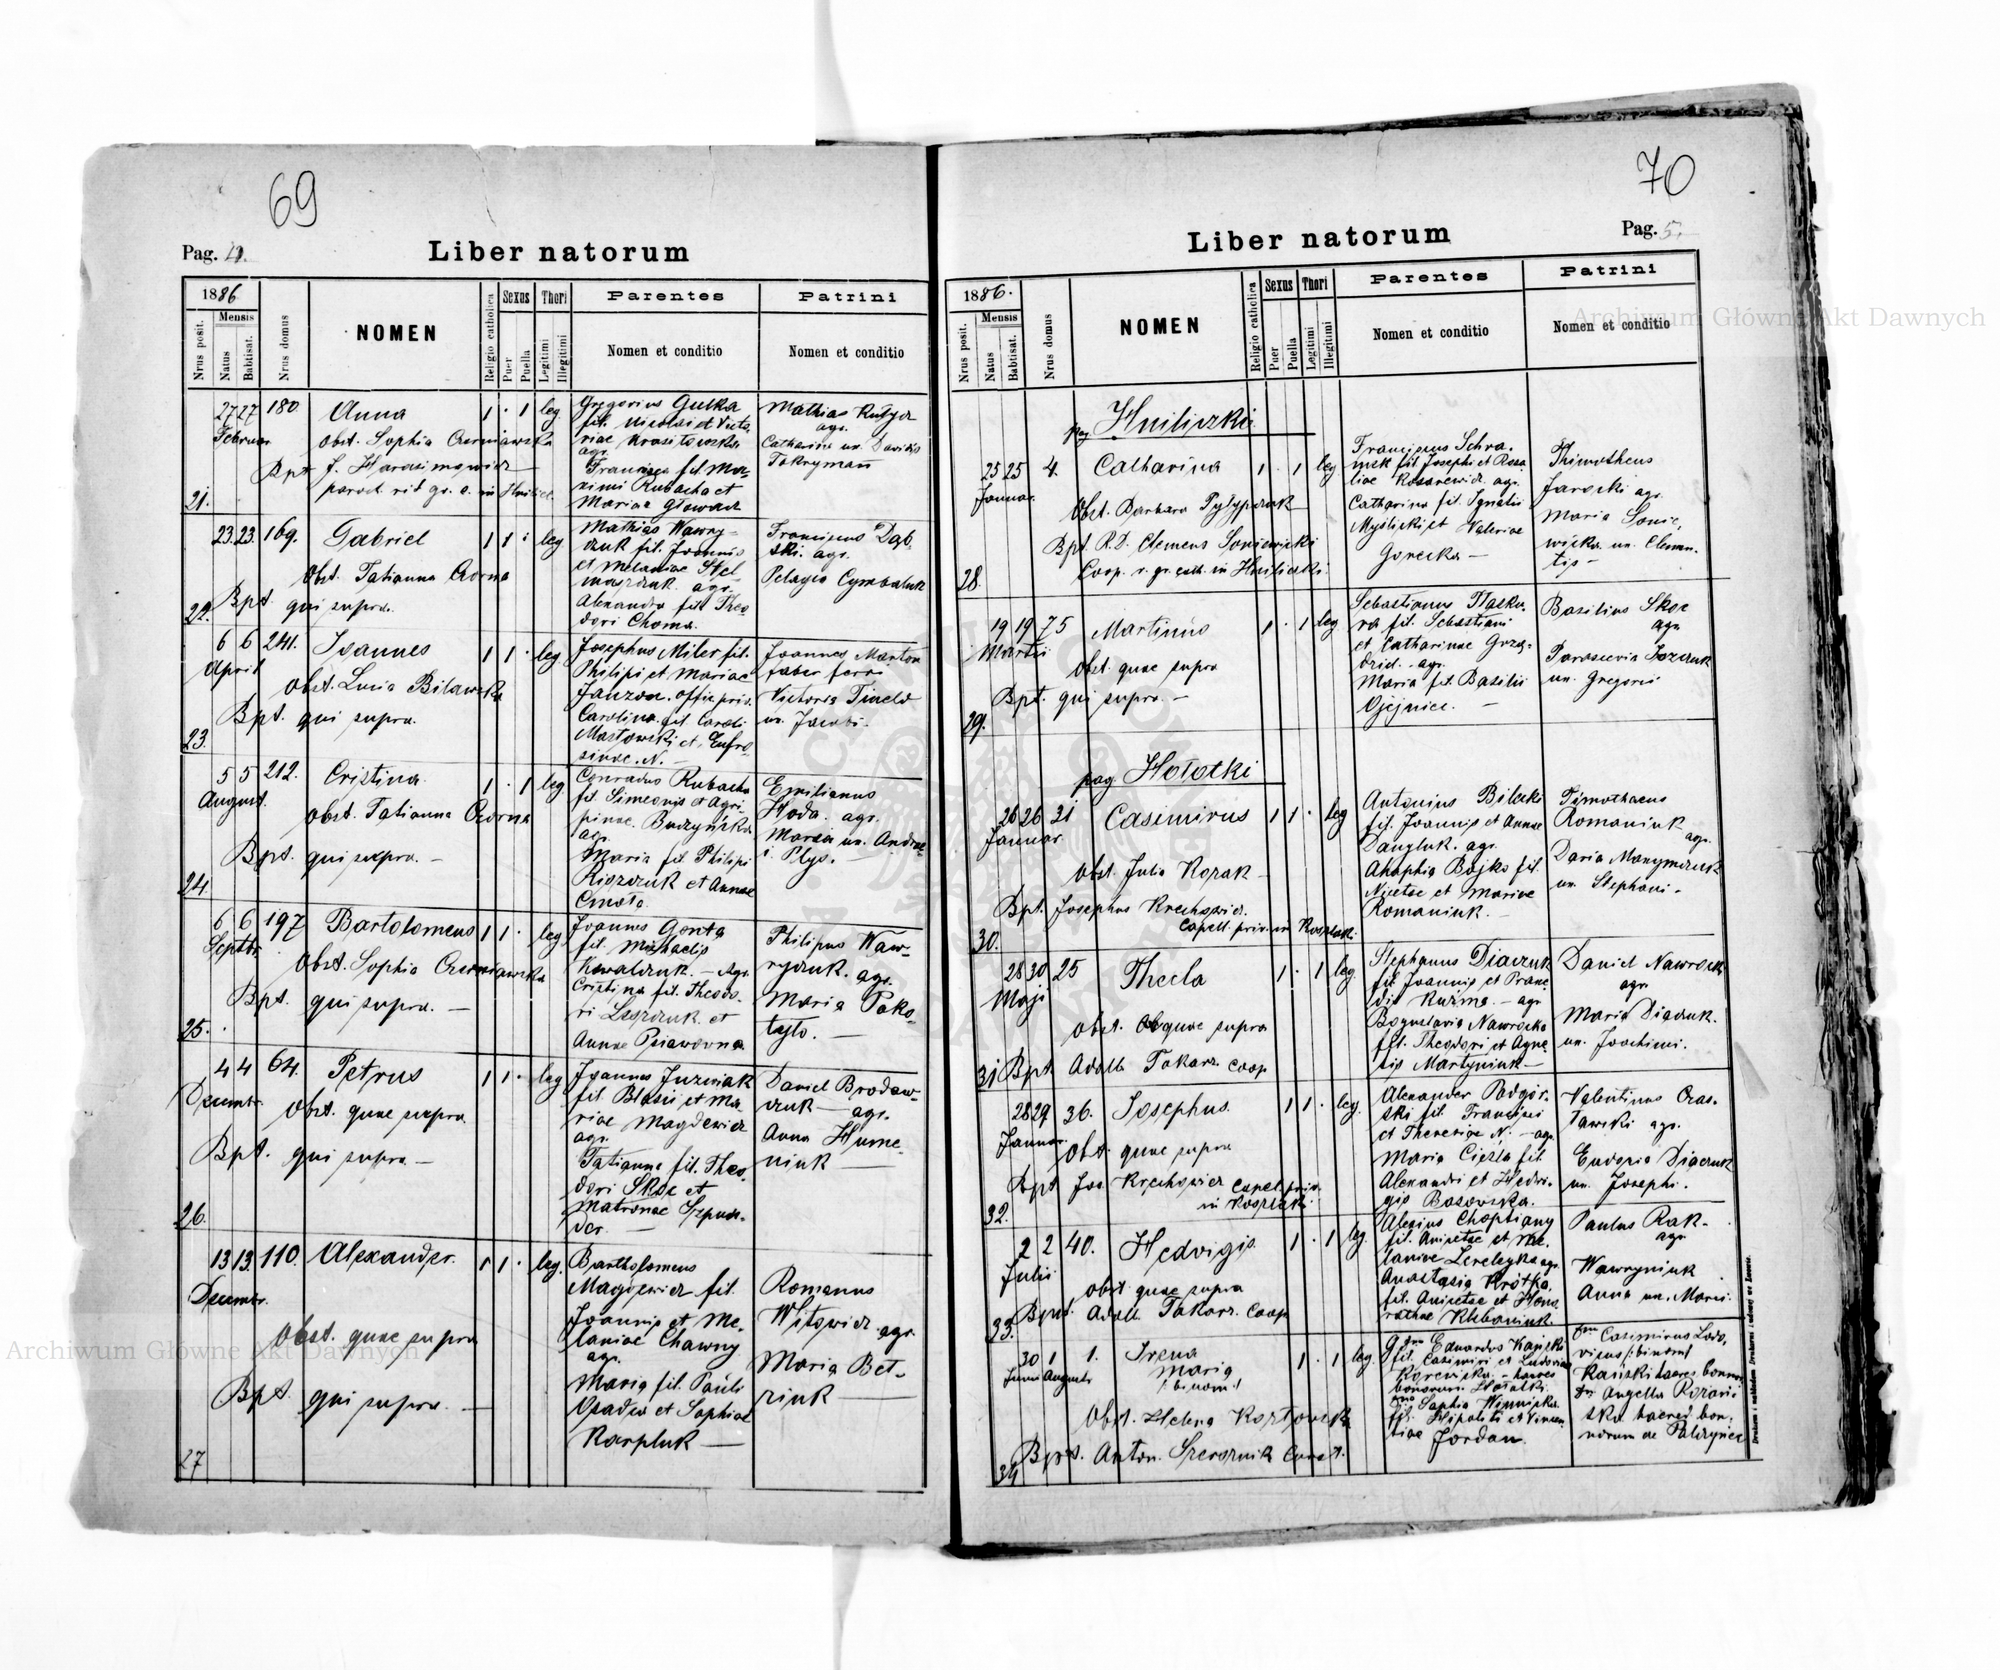 69
Pag. 4.
Liber natorum
1886
Mensis
Nrus posit.
Natus
Babtisat.
Nrus domus
NOMEN
Religio catholica
Sexus
Puer
Puella
Thori
Legitimi
Illegitimi
Parentes
Nomen et conditio
Patrini
Nomen et conditio
21.
27 27 180.
Februar
Anna
obst. Sophia Czerniawska
Bpt. J. Harasimowicz
paroch. rit. gr. c. in
1 · 1 leg
Gregorius Gulka
fil. Nicolai et Victo
riae
agr.
Francisca fil. Ma-
ximi Rubacha et
Mariae Głowacz
Mathias
agr.
Catharina ux. Davidis
Tokryman
22.
23. 23. 169.
Gabriel
Obst. Tatianna Czorna
Bpt. qui supra.
1 1 · leg
Mathias Wawry-
czuk fil. Joannis
et Melaniae Stel
maszczuk agr.
Alexandra fil. Theo
dori Choma.
Franciscus Dąb
ski. agr.
Pelagia Cymbaluk
23.
6 6 241.
April
Joannes
Obst. Lucia Bilawska
Bpt. qui supra.
1 1 · leg
Josephus Miler fil.
Philipi et Mariae
Janzon. offic. priv.
Carolina fil. Caroli
Masłowski et Eufro
sinae. N. -
Joannes Marton
faber ferri
Victoria
ux. Jacobi.
24.
5 5 212.
August.
Cristina
obst. Tatianna Czorna
Bpt. qui supra. -
1 · 1 leg
Conradus Rubacha
fil. Simeonis et Agri
pinae. Buczyńska
agr.
Maria fil. Philipi
et Annae
Emilianus
Hoda. agr.
Maria ux. Andrae
i Plys. -
25.
6 6 197
Septbr.
Bartolomeus
Obst. Sophia Czerniawska
Bpt. qui supra. -
1 1 · leg
Joannes Gonta
fil. Michaelis
Kowalczuk. - Agr.
Cristina fil. Theodo-
ri Leszczuk et
Annae
Philipus Waw-
ryczuk. agr.
Maria Pako-
26.
4 4 64.
Decembr.
Petrus
Obst. quae supra
Bpt. qui supra -
1 1 · leg
Joannes Juzwiak
fil. Blasii et Ma-
riae Magdewicz
agr.
Tatianna fil. Theo-
dori Skoc et
Matronae Szpun-
der. -
Daniel Brodaw-
czuk - agr.
Anna Hume-
niuk -
27
13 13 110.
Decembr.
Alexander.
Obst. quae supra
Bpt. qui supra. -
1 1 · leg.
Bartholomeus
Magdewicz fil.
Joannis et Me-
laniae Chawny
agr.
Maria fil. Pauli
Osadca et Sophiae
Karpluk -
Romanus
Witowicz agr.
Maria Bet-
riuk
70
Pag. 5.
Liber natorum
1886.
Mensis
Nrus posit.
Natus
Babtisat.
Nrus domus
NOMEN
Religio catholica
Sexus
Puer
Puella
Thori
Legitimi
Illegitimi
Parentes
Nomen et conditio
Patrini
Nomen et conditio
pag. Hniliczki
28.
25 25 4.
Januar.
Catharina
Obst. Barbara Pylypczuk
Bpt. R. D. Clemens Soniewicki
Coop. r. gr. cath. in Hniliczki.
1 · 1 leg
Franciscus Schra-
mek fil. Josephi et Rosa
liae Kosarewicz agr.
Catharina fil. Ignatii
Myslicki et Valeriae
Gorecka -
Thimotheus
Jarocki agr.
Maria Sonie-
wicka ux. Clemen-
tis -
29.
19 19 75
Martii
Martinus
obst. quae supra
Bpt. qui supra. -
1 · 1 leg
Sebastianus
ra fil. Sebastiani
et Catharinae
agr.
Maria fil. Basilii
Ojejnicc. -
Basilius Skoc
agr.
Parascevia
ux. Gregorii
pag. Hołotki
30.
26 26 31
Januar
Casimirus
Obst. Julia Kozak -
Bpt. Josephus Krechowicz.
Capell. priv. in
1 1 · leg
Antonius Bilecki
fil. Joannis et Annae
Danyluk. agr.
Anaphia Bojko fil.
Nicetae et Mariae
Romaniuk. -
Timothaeus
Romaniuk agr.
Daria Manymczuk
ux. Stephani -
31
28 30 25
Maji
Thecla
obst. quae supra
Bpt. Adalb. Tokarz. coop
1 · 1 leg.
Stephanus Diaczuk
fil. Joannis et Praxe
dis Kuźma. - agr
Boguslavia Nawrocka
fil. Theodori et Agne
tis Martyniuk -
Daniel Nawrocki
agr.
Maria Diaczuk.
ux. Joachimi.
32.
28 29 36.
Januar.
Josephus.
Obst. quae supra
Bpt Jos. Krechowicz capel. priv.
in
1 1 · leg.
Alexander Podgór-
ski fil. Francisci
et Theresiae N. - agr.
Maria Cieżla fil.
Alexandri et Hedwi-
gis Bosowska.
Valentinus Czas-
ławski agr.
Eudoxia Diaczuk
ux. Josephi.
33.
2 2 40.
Julii
Hedvigis.
obst. quae supra
Bpt. Adalb. Tokarz. coop
1 · 1 leg.
Alexius Choptiany
fil. Anicetae et Me-
laniae agr.
Anastasia Krótka.
fil. Anicetae et
Klibaniuk.
Paulus Rak-
agr.
Wawryniuk
Anna ux. Marci.
34
30 1 1.
Junii Augusti
Irena
Maria
/: binom :/
Obst. Helena
Bpt. Anton. Curat.
1 · 1 leg.
Eduardus
fil. Casimiri et Ludovicae
- haeres
bonorum Hołotki.
Sophia Winnicka
fil. Hipoliti et Vincen
tiae Jordan.
Casimirus Lodo-
vicus /: binom :/
haeres bonor.
Angella
ska haered. bon-
norum de Palczyńce
Archiwum Główne Akt Dawnych
Archiwum Główne Akt Dawnych